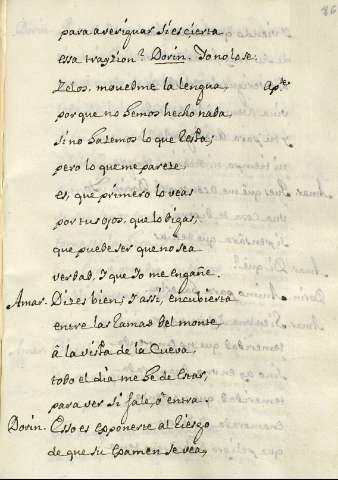 86
para averiguar si es cierta
essa trayzion? Dorin. Yo no lo se:
Zelos, movedme la lengua, Apte.
porque no hemos hecho nada,
si no hazemos lo que resta;
pero lo que me pareze
es, que primero lo veas
por tus ojos, que lo digas,
que puede ser que no sea
verdad, y que yo me engañe.
Amar. Dizes bien; y assi, encubierta
entre las ramas del monte,
â la vista de la Cueva,
todo el dia me he de estar,
para ver si sale, ô entra.
Dorin. Esso es exponerte al riesgo
de que su examen se vea,